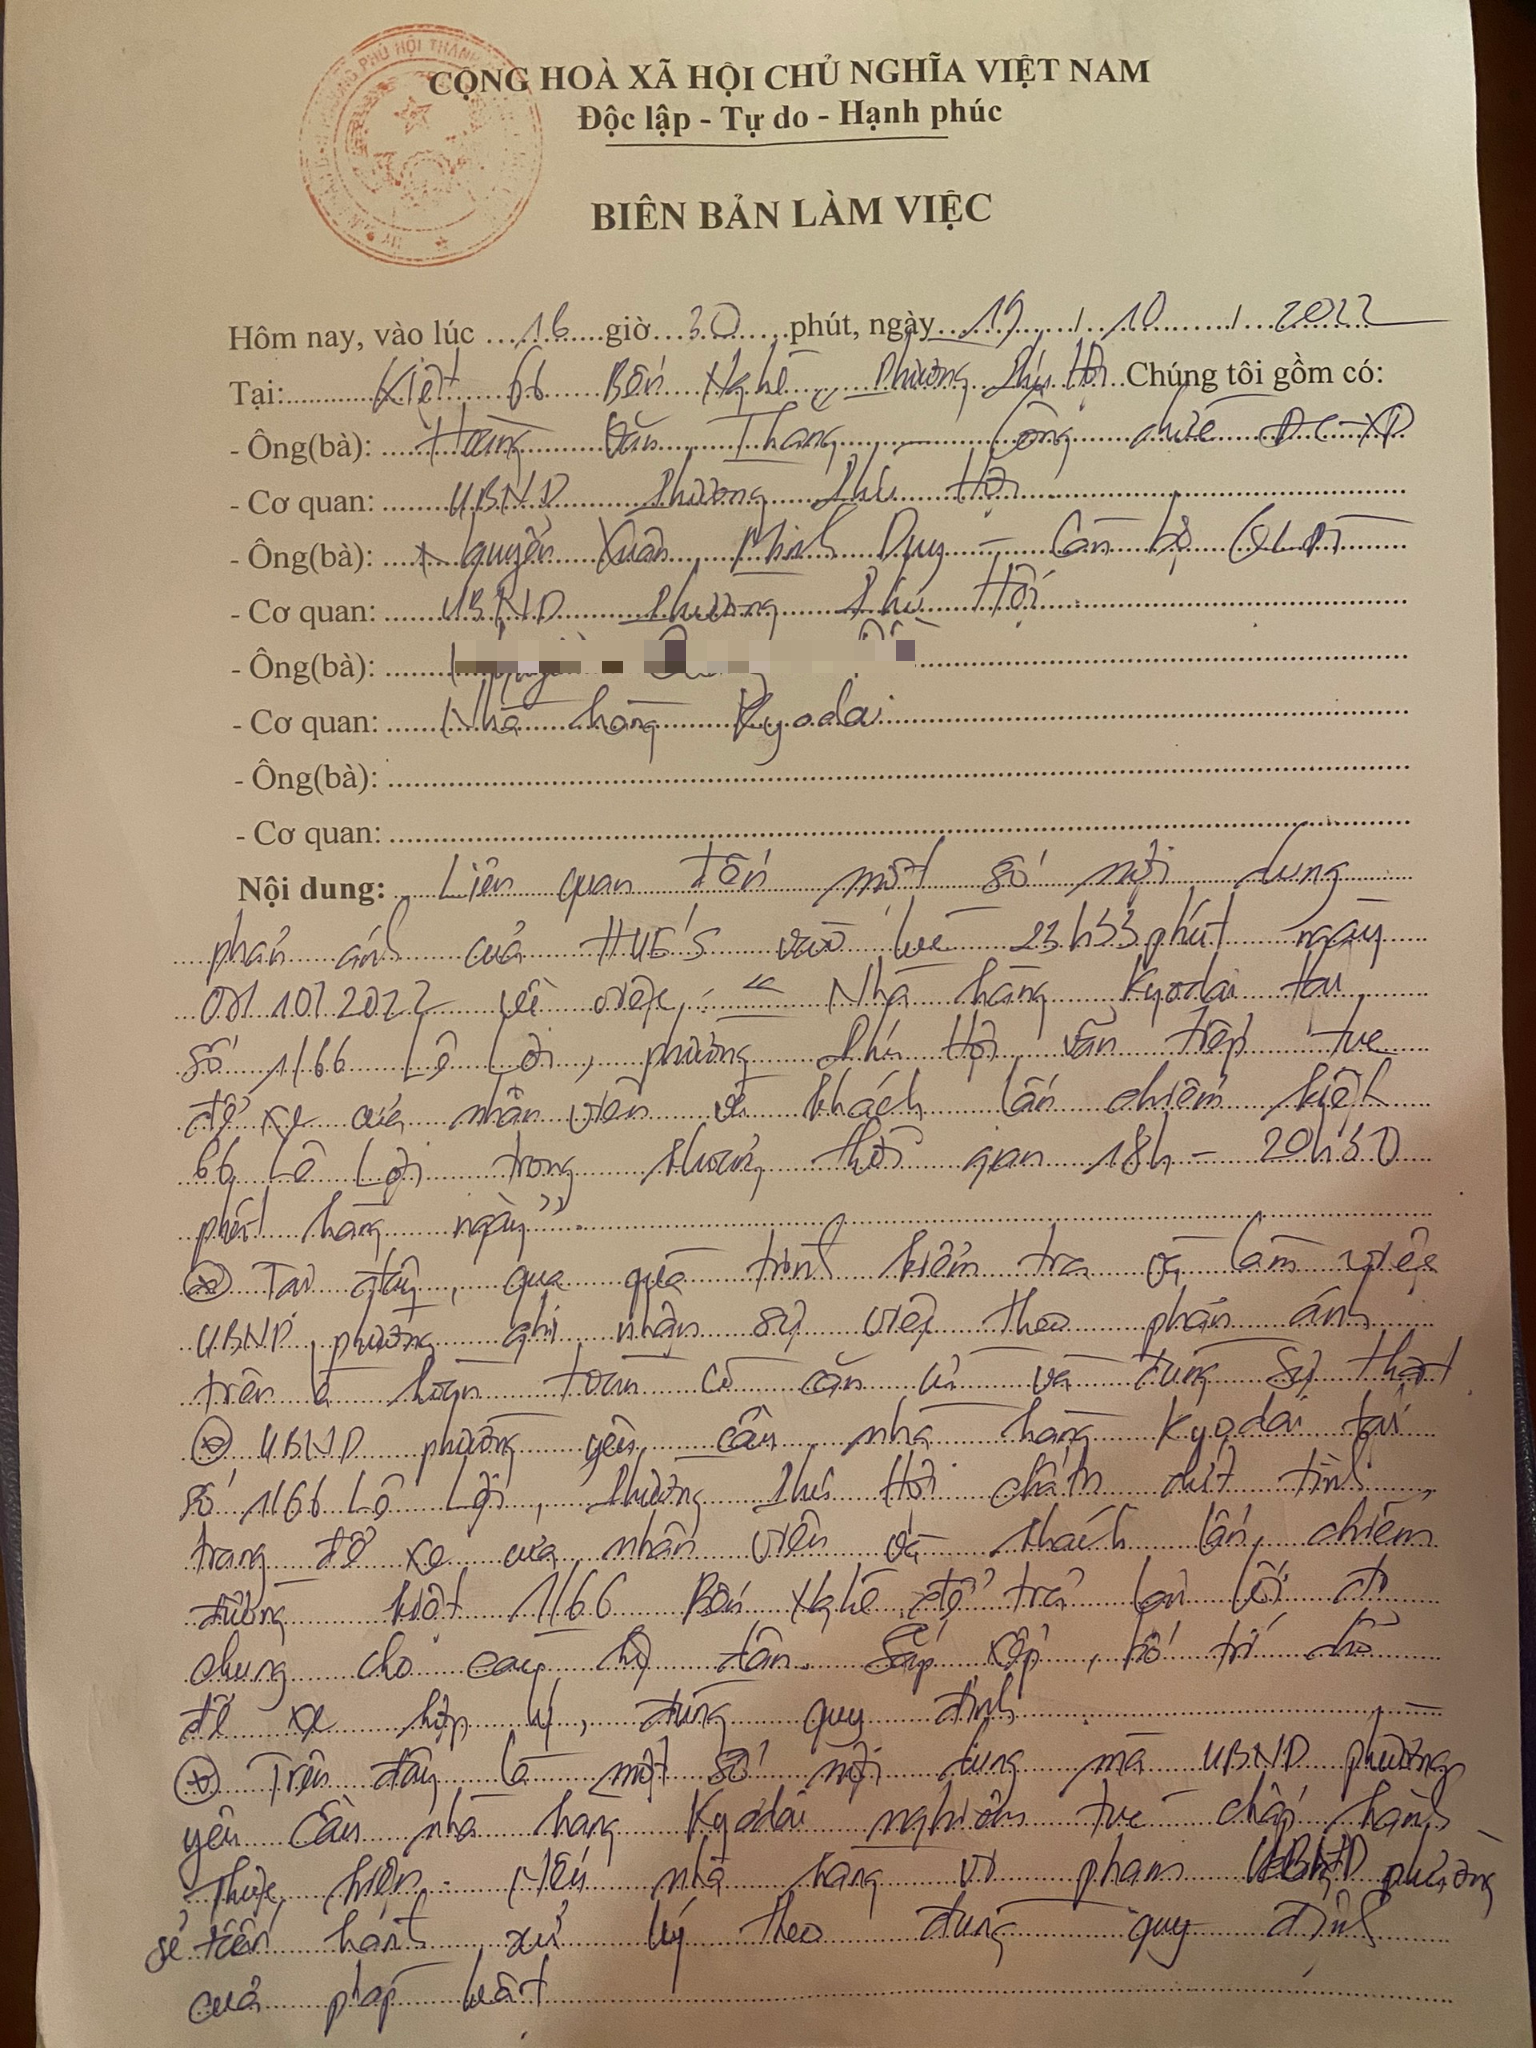 CỘNG HOÀ XÃ HỘI CHỦ NGHĨA VIỆT NAM
Độc lập - Tự do - Hạnh phúc
BIÊN BẢN LÀM VIỆC
Hôm nay, vào lúc 16 giờ 30 phút, ngày 19 / 10 / 2022
Tại: Kiệt 66 Bến Nghé, phường Phú Hội Chúng tôi gồm có:
- Ông(bà): Hoàng Văn Thăng - Công chức ĐC-XD
- Cơ quan: UBND Phường Phú Hội
- Ông(bà): Nguyễn Xuân Minh Duy - Cán bộ
- Cơ quan: UBND Phường Phú Hội
- Ông(bà):
- Cơ quan: Nhà hàng Kyodai
- Ông(bà):
- Cơ quan:
Nội dung: Liên quan đến một số nội dung
phản ánh của HUẾ S vào lúc 23h33 phút ngày
10/2022 về việc: "Nhà hàng Kyodai tại
số 1/66 Lê Lợi, phường Phú Hội vẫn tiếp tục
để xe của nhân viên và khách lấn chiếm kiệt
66 Lê Lợi trong khoảng thời gian 18h - 20h30
phút hàng ngày".
Tại đây, qua quá trình kiểm tra và làm việc
UBND phường ghi nhận sự việc theo phản ánh
trên là hoàn toàn có căn cứ và đúng sự thật
UBND phường yêu cầu nhà hàng Kyodai tại
số 1/66 Lê Lợi, Phường Phú Hội chấm dứt tình
trạng để xe của nhân viên và khách lấn chiếm
đường kiệt 1/66 Bến Nghé để trả lại lối đi
chung cho các hộ dân. Sắp xếp, bố trí chỗ
để xe hợp lý, đúng quy định
Trên đây là một số nội dung mà UBND phường
yêu cầu nhà hàng Kyodai nghiêm túc chấp hành
thực hiện. Nếu nhà hàng vi phạm UBND phường
sẽ tiến hành xử lý theo đúng quy định
của pháp luật